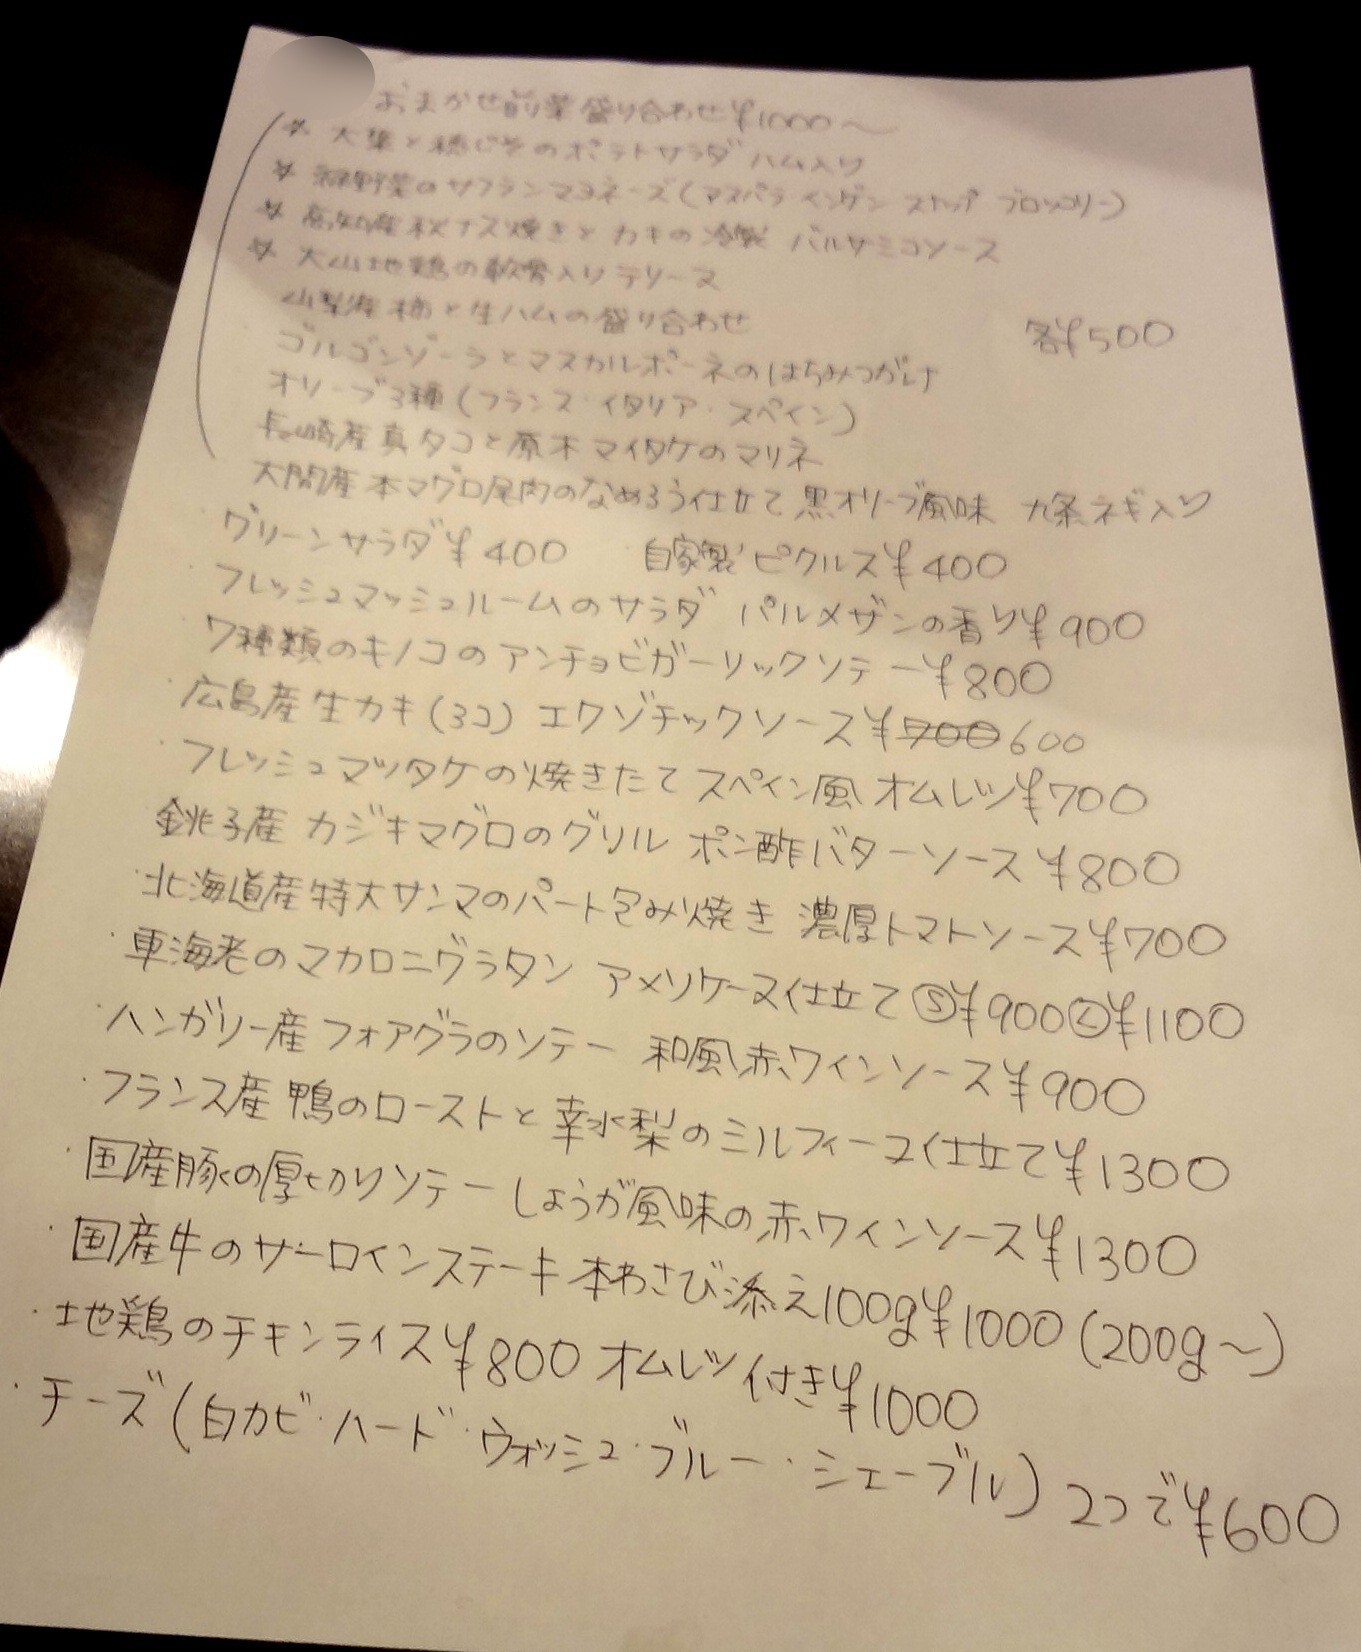 おまかせ前菜盛り合わせ¥1000〜
☆ 大葉と穂じそのポテトサラダ ハム入り
☆ 緑野菜のサフランマヨネーズ(アスパラ インゲン スナップ ブロッコリー)
☆ 高知産秋ナス焼きとカキの冷製 バルサミコソース
☆ 大山地鶏の軟骨入りテリーヌ
山梨産柿と生ハムの盛り合わせ 各¥500
ゴルゴンゾーラとマスカルポーネのはちみつがけ
オリーブ3種(フランス・イタリア・スペイン)
長崎産真タコと原木マイタケのマリネ
大間産本マグロ尾肉のなめろう仕立て 黒オリーブ風味 九条ネギ入り
グリーンサラダ¥400 自家製ピクルス¥400
・フレッシュマッシュルームのサラダ パルメザンの香り¥900
・7種類のキノコのアンチョビガーリックソテー¥800
・広島産生カキ(3コ) エクゾチックソース¥700 600
・フレッシュマツタケの焼きたて スペイン風 オムレツ¥700
銚子産 カジキマグロのグリル ポン酢バターソース¥800
・北海道産特大サンマのパート包み焼き 濃厚トマトソース¥700
・車海老のマカロニグラタン アメリケーヌ仕立て Ⓢ¥900Ⓛ¥1100
・ハンガリー産フォアグラのソテー 和風赤ワインソース¥900
・フランス産 鴨のローストと幸水梨のミルフィーユ仕立て¥1300
・国産豚の厚切りソテー しょうが風味の赤ワインソース¥1300
・国産牛のサーロインステーキ 本わさび添え100g¥1000(200g〜)
・地鶏のチキンライス¥800 オムレツ付き¥1000
・チーズ(白カビ・ハード・ウォッシュ・ブルー・シェーブル) 2つで¥600